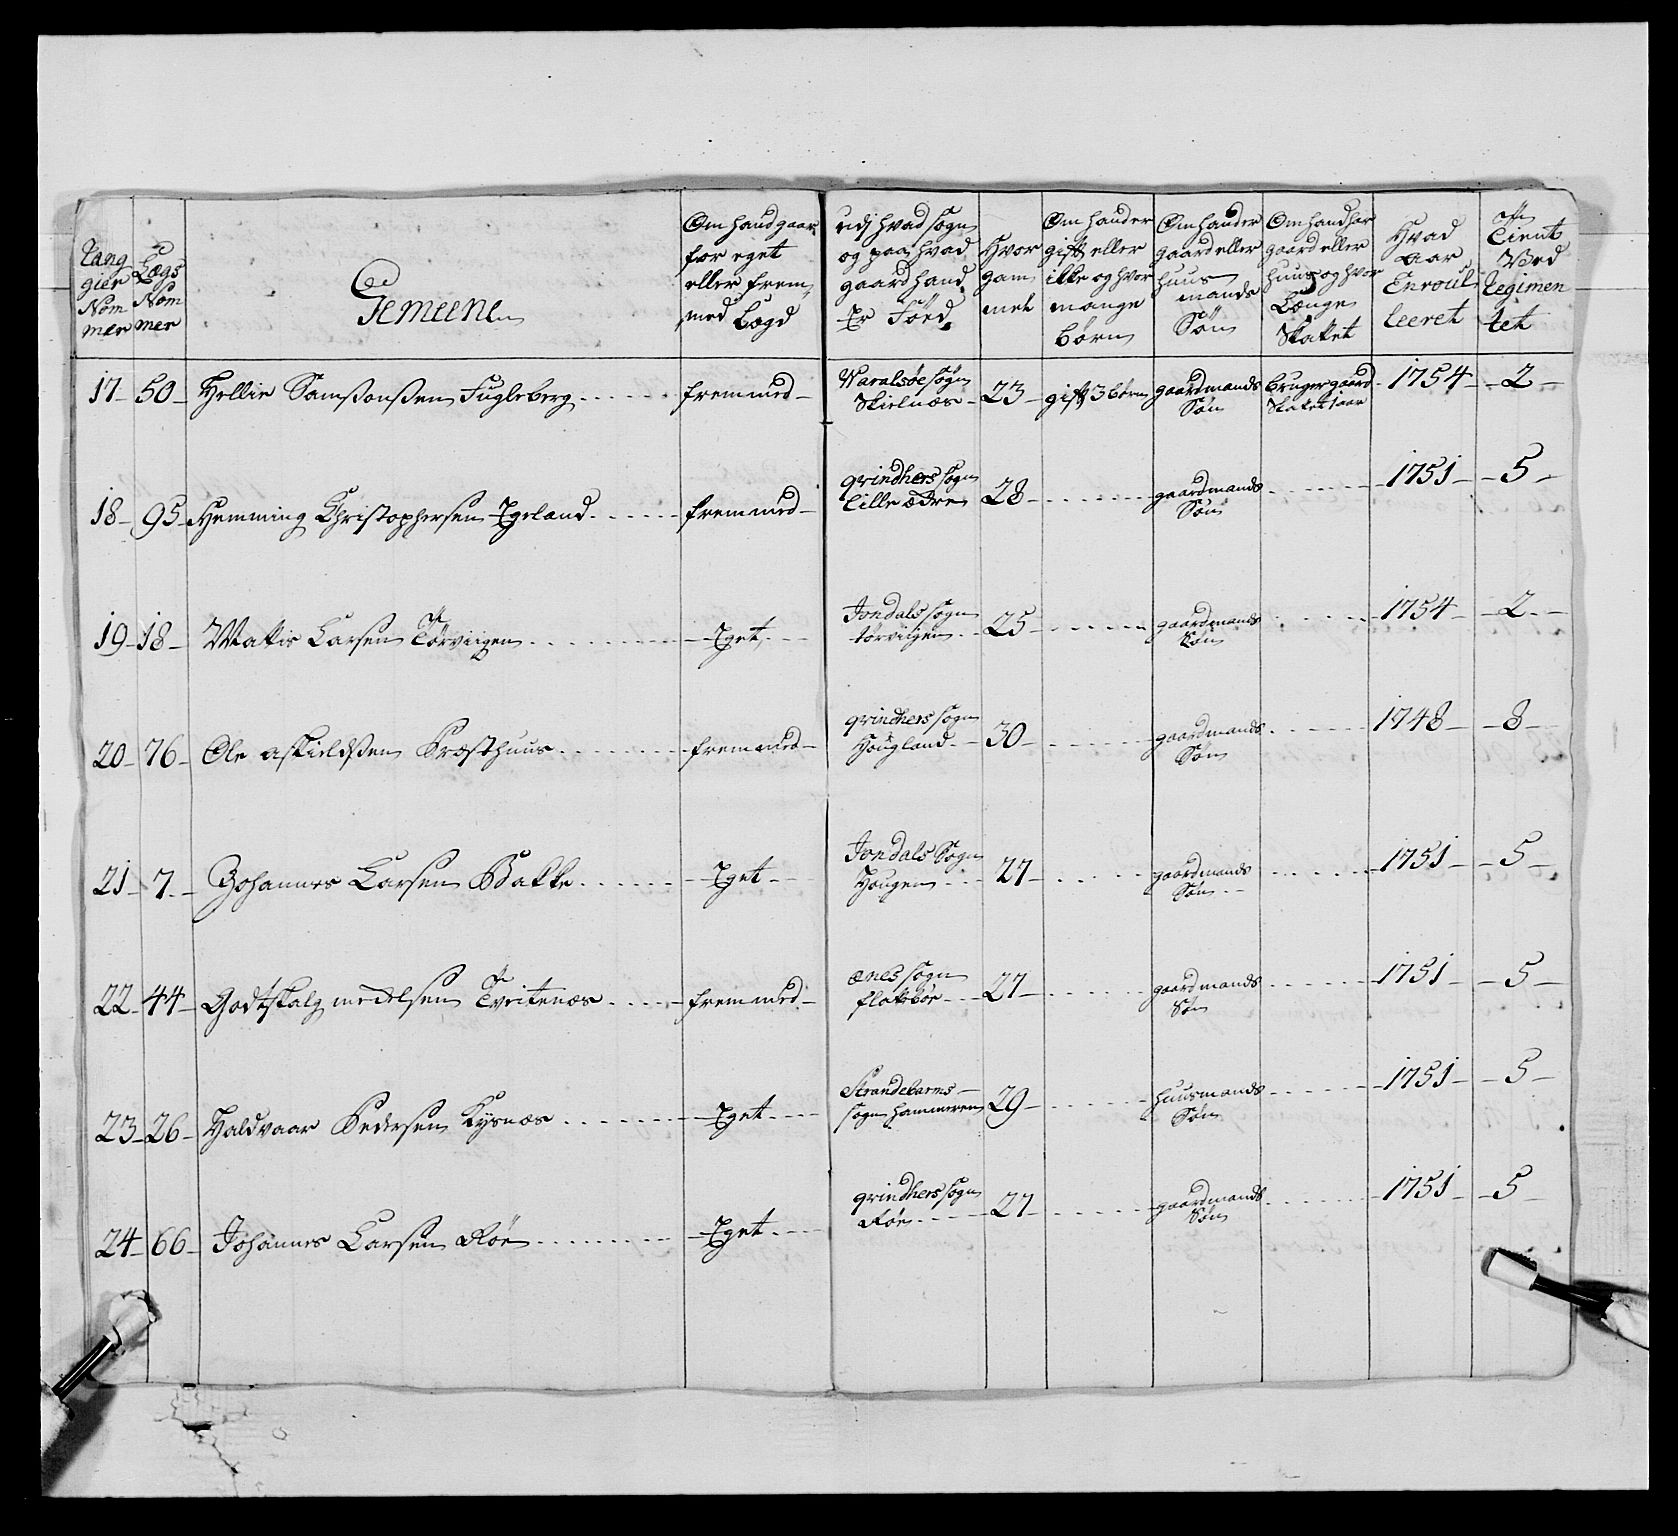 Rang gier Nom mer | Lægs Nom mer | Gemeene | Om hand gaar for eget eller frem med Lægd | udj hvad sogn og paa hvad gaard hand Er Föed | Hvor gam mel | Om hand er gift eller ikke og hvor mange börn | Om hand er gaard eller huus mands Sön | Om hand har gaard eller huus og hvor Længe Skattet | Hvad aar Enroul leeret | Tient Ved Regimen tet
17 | 50 | Hellie Samsonsen Fugleberg | fremmed | Waralsöe sogn Skielnæs | 23 | gift 3 börn | gaardmands Sön | bruger gaard Skattet 1 aar | 1754 | 2
18 | 95 | Hemming Christophersen Egeland | fremmed | qvindhers sogn Lille ædre | 28 | gaardmands Sön | 1751 | 5
19 | 18 | Mattis Larsen Törviigen | Eget | Jondals sogn törviigen | 25 | gaardmands Sön | 1754 | 2
20 | 76 | Ole askieldsen Krosthuus | fremmed | qvindhers sogn Hougland | 30 | gaardmands Sön | 1748 | 8
21 | 7 | Johannes Larsen Bakke | Eget | Jondals Sogn Hougen | 27 | gaardmands Sön | 1751 | 5
22 | 44 | Godtskalg medelsen Tveitenæs | fremmed | ænes sogn flateböe | 27 | gaardmands Sön | 1751 | 5
23 | 26 | Haldvaar Pedersen Kysnæs | Eget | Strandebarms sogn hammeren | 29 | huusmands Sön | 1751 | 5
24 | 66 | Johannes Larsen Röe | Eget | qvindhers sogn Röe | 27 | gaardmands Sön | 1751 | 5